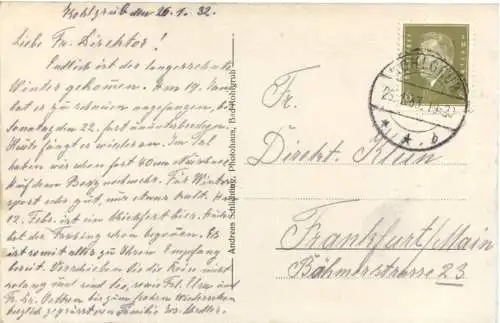 Kohlgrub den 26.1.32.
Liebe Fr. Direktor!
Endlich ist der langersehnte
Winter gekommen. Am 19. Januar
hat es zu schneien angefangen, bis
Sonntag den 22. fort ununterbrochen.
Heute fängt es wieder an. Im Tal
haben wir schon fast 40 cm Neuschnee
auf dem Berg noch mehr. Für Winter
sport sehr gut, nur etwas kalt. Am
12. Febr. ist ein
hat der Fasching schon begonnen. Es
ist somit alles zu Ihrem Empfang
bereit. Verschieben Sie die Reise nicht
solang und sind Sie, sowie Frl. und
Fr. Dr. bis zum frohen Wiedersehen
herzlich gegrüsst von Familie Jos.
Andreas Schilling, Photohaus, Bad Kohlgrub
KOHLGRUB
Fr.
Direkt. Klein
Frankfurt/Main
Böhmerstrasse 23